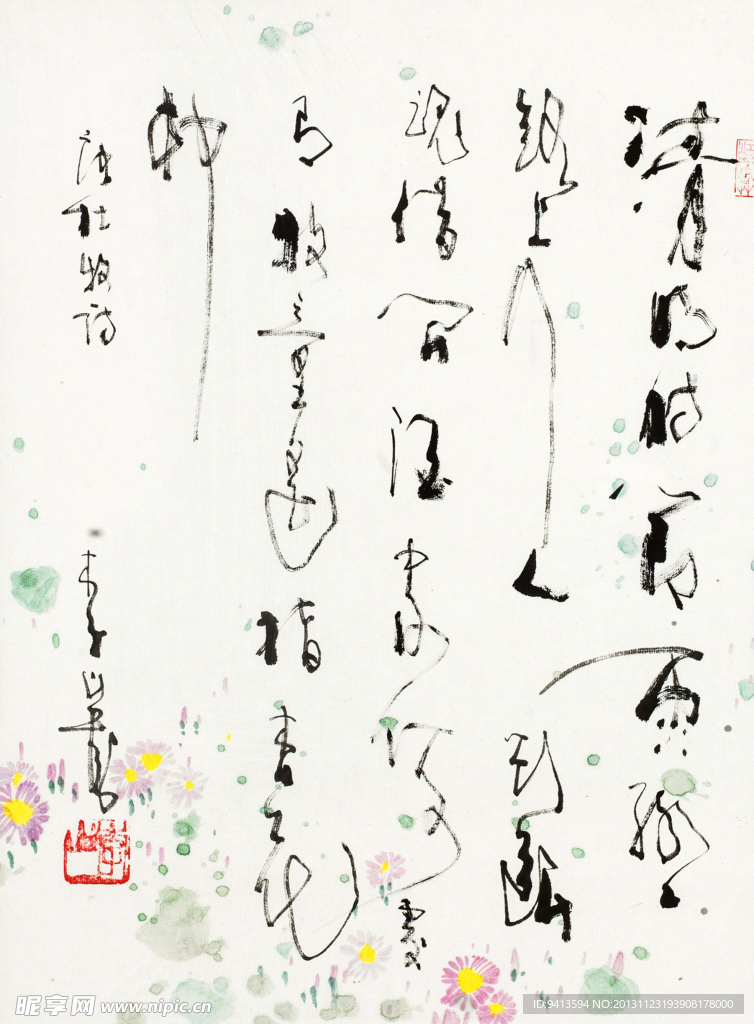 清明時節雨紛〻
路上行人欲斷
魂借問酒家何處
有牧童遙指杏花
村
唐杜牧詩
昵享网 www.nipic.cn
ID:9413594 NO:20131123193908178000